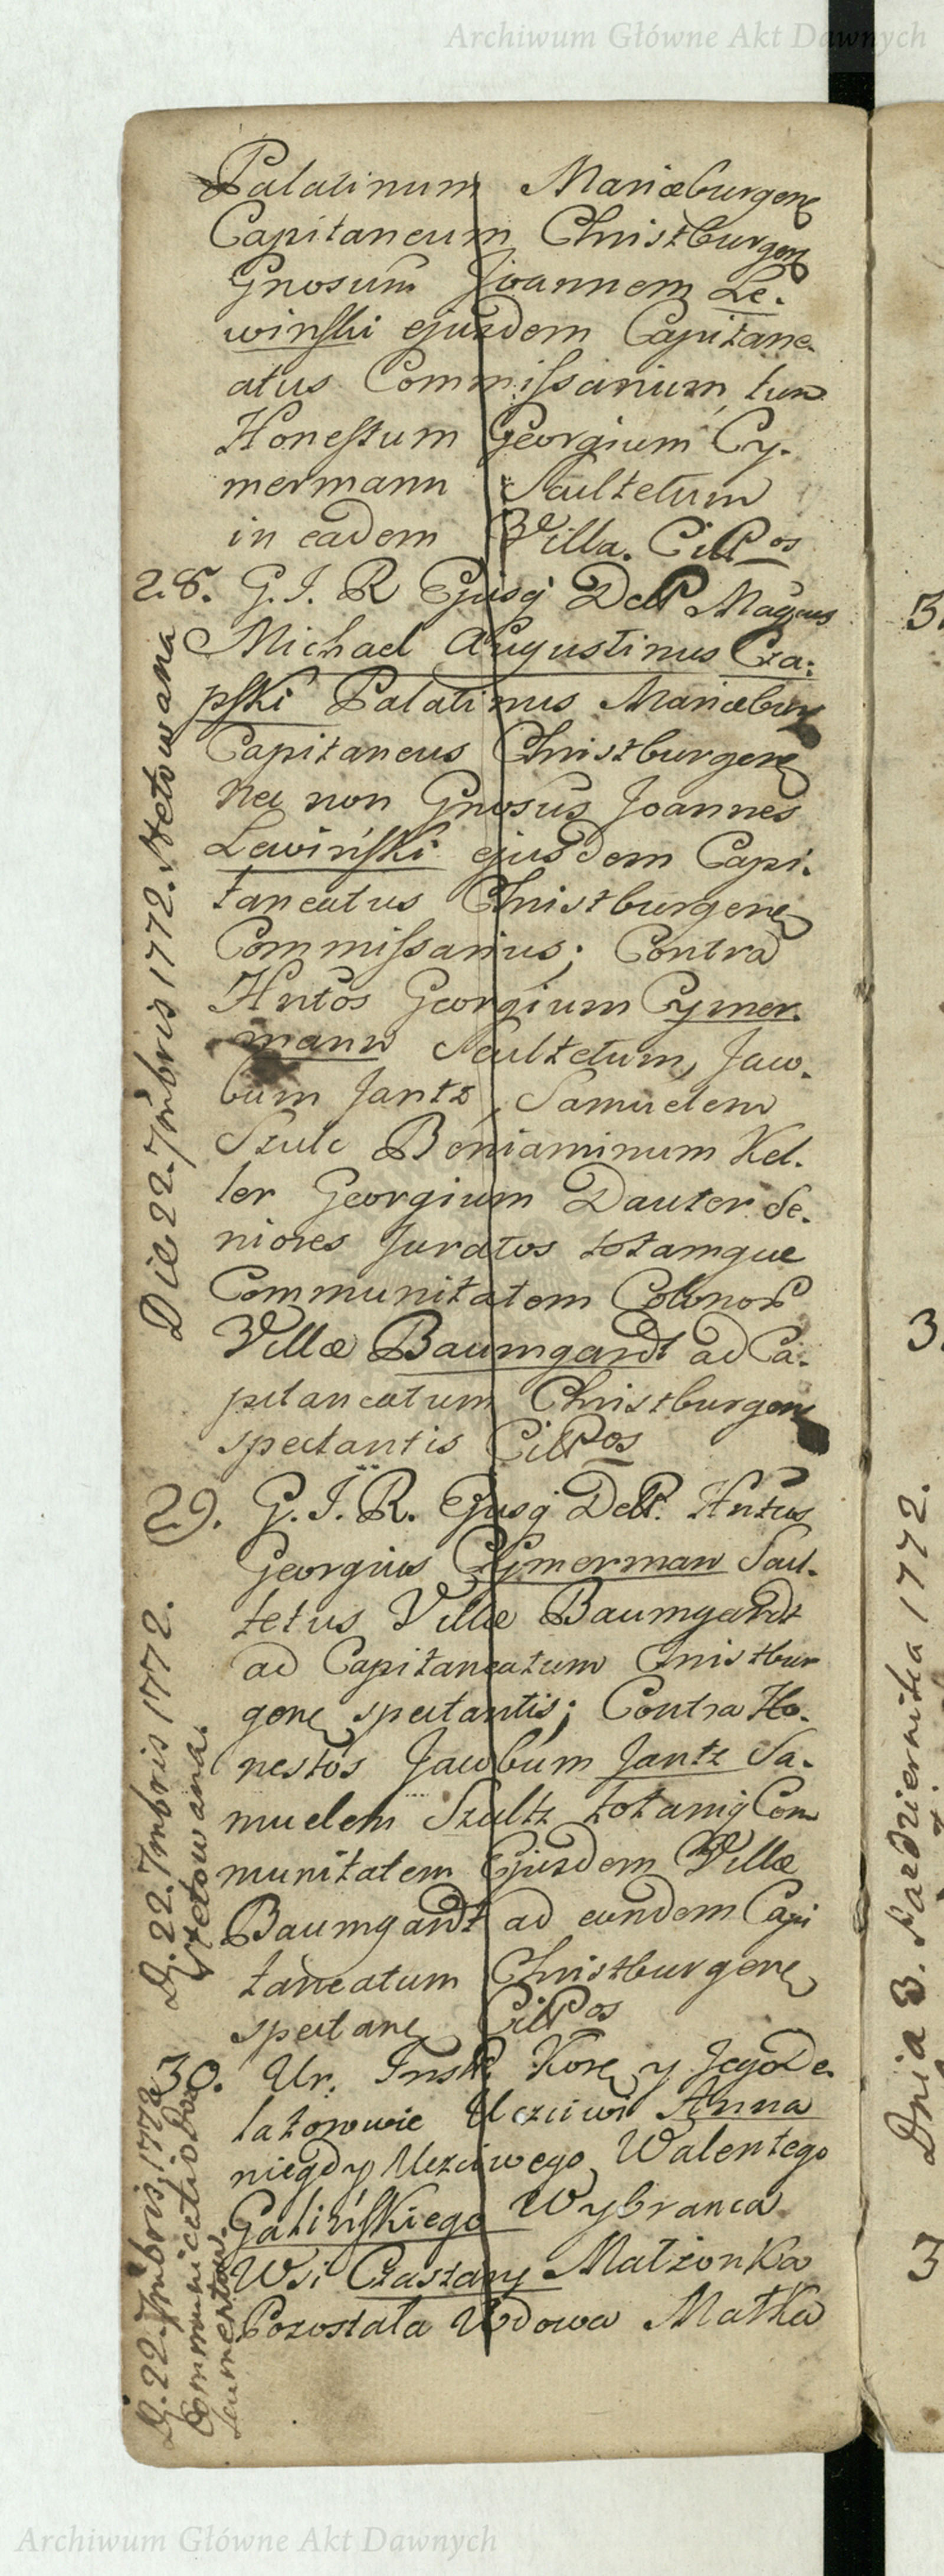 Archiwum Główne Akt Dawnych
Palatinum Mariæburgen
Capitaneum Christburgen
Gnosum Joannem Le-
winski ejusdem Capitane-
atus Commissarium, tum
Honestum Georgium Cy-
mermann Scultetum
in eadem Villa. Citt os
28. G. I. R Ejusq Delt Magcus
Michael Augustinus Cza-
pski Palatinus Mariæbur
Capitaneus Christburgen
Nec non Gnosus Joannes
Lewiński ejusdem Capi-
taneatus Christburgen
Commissarius; Contra
Hntos Georgium Cymer-
mann Scultetum, Jaco-
bum Jantz, Samuelem
Szulc Beniaminum Kel-
ler Georgium Dauter Se-
niores Juratos totamque
Communitatem Colonor
Villæ Baumgardt ad Ca-
pitaneatum Christburgen
spectantis Citt os
29. G. I. R. Ejusq Delt. Hntus
Georgius Cymerman Scul-
tetus Villæ Baumgardt
ad Capitaneatum Christbur
gen spectantis; Contra Ho-
nestos Jacobum Jantz Sa-
muelem Szultz totamq Com
munitatem Ejusdem Villæ
Baumgardt ad eundem Capi
taneatum Christburgen
spectan Citt os
30. Ur. Inst. Kor y Jego De-
latorowie Uczciwi Anna
niegdy Uczciwego Walentego
Gatińskiego Wybranca
Wsi Czastary Małżonka
Pozostała Wdowa Matka
Die 22. 7mbris 1772. Wetowana
D. 22. 7mbris 1772.
Wetowana.
D. 22 7mbris 1772
Communicatio Do-
cumentow.
3.
3.
Dnia 3. Pazdziernika 1772.
3
Archiwum Główne Akt Dawnych